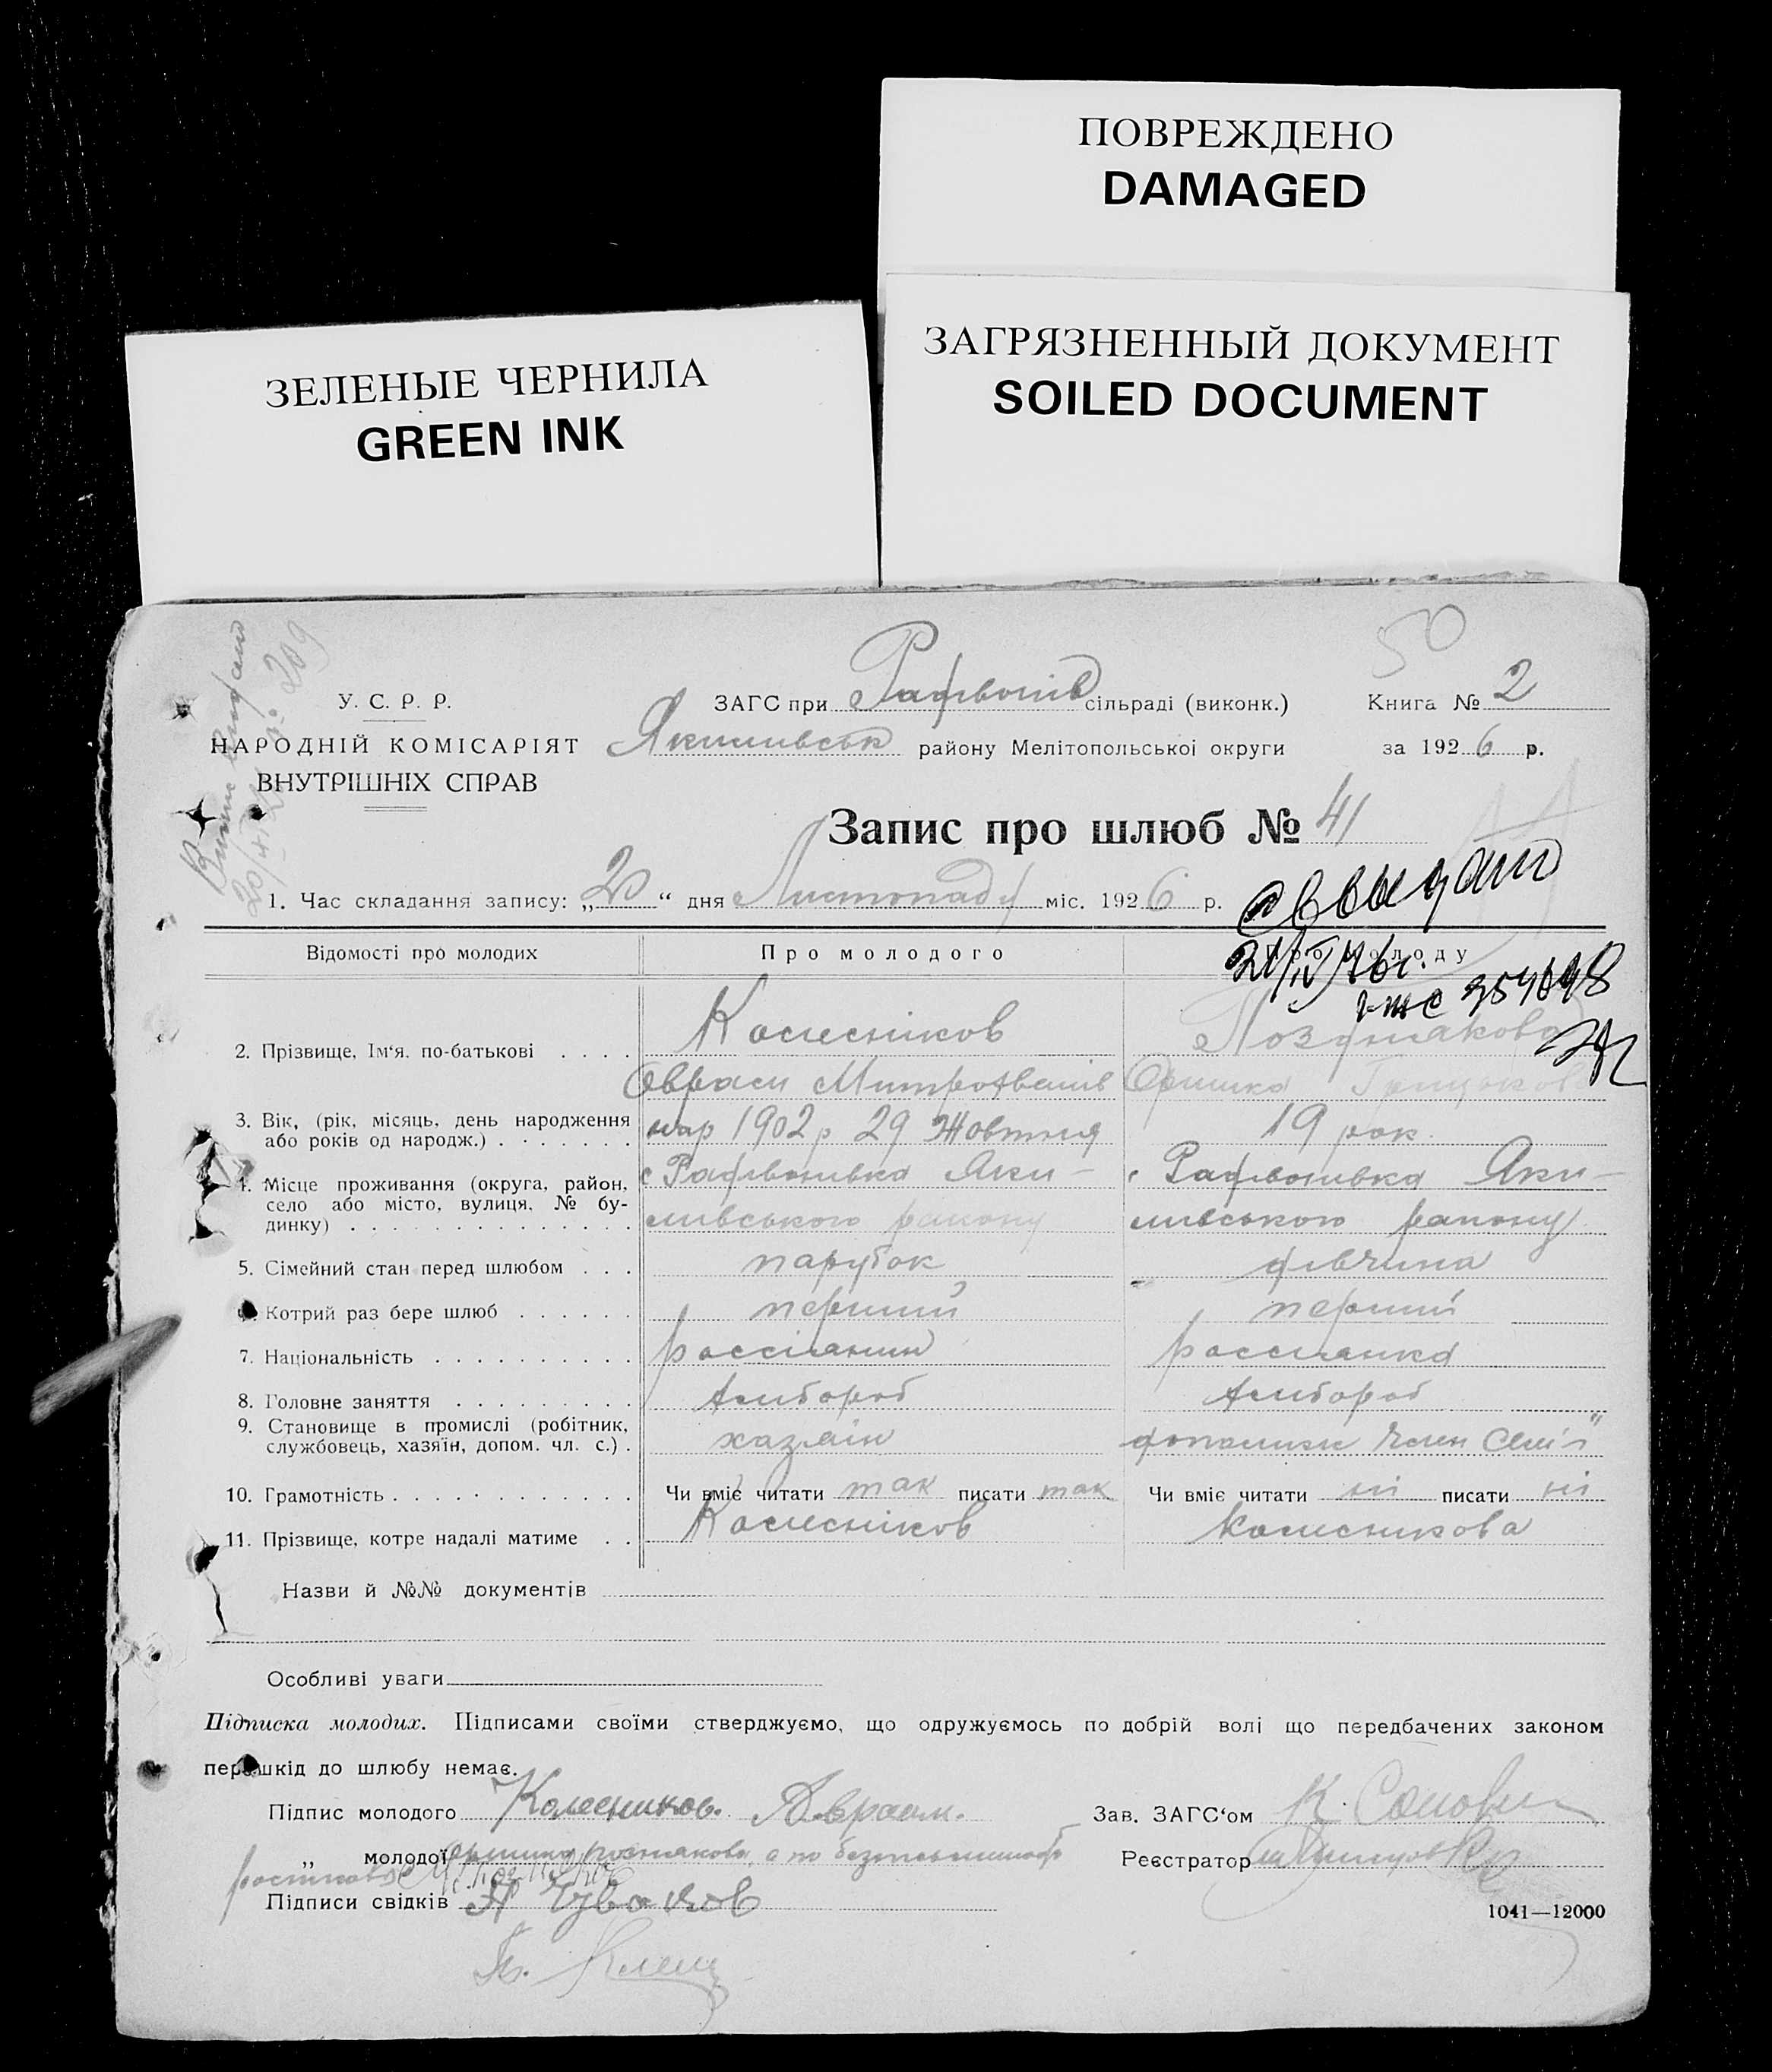 ПОВРЕЖДЕНО
DAMAGED
ЗАГРЯЗНЕННЫЙ ДОКУМЕНТ
SOILED DOCUMENT
ЗЕЛЕНЫЕ ЧЕРНИЛА
GREEN INK
50
У. С. Р. Р.
НАРОДНІЙ КОМІСАРІЯТ
ВНУТРІШНІХ СПРАВ
ЗАГС при Радівонів сільраді (виконк.)
Якимівськ району Мелітопольської округи
Книга № 2
за 1926 р.
Запис про шлюб № 41
1. Час складання запису: „20“ дня Листопаду міс. 1926 р.
Відомості про молодих Про молодого Про молоду
2. Прізвище, Ім‘я. по-батькові . . . . Колесніков Позднякова
Оврам Митрофанів Оришка
3. Вік, (рік, місяць, день народження
або років од народж.) . . . . . . . нар 1902 р 29 Жовтня 19 рок.
4. Місце проживання (округа, район,
село або місто, вулиця, № бу-
динку) . . . . . . . . . . . . . .
с Радівонівка Яки-
мивського району
с Радівонивка Яки-
мивського району
5. Сімейний стан перед шлюбом . . . парубок дівчина
Котрий раз бере шлюб . . . . . . перший перший
7. Національність . . . . . . . . . . россіянин россіянка
8. Головне заняття . . . . . . . . . хлибороб хлибороб
9. Становище в промислі (робітник,
службовець, хазяїн, допом. чл. с.) . хазяін член семії
10. Грамотність . . . . . . . . . . . . Чи вміє читати так писати так Чи вміє читати ні писати ні
11. Прізвище, котре надалі матиме . . Колесніков Колесникова
Назви й №№ документів
Особливі уваги
Підписка молодих. Підписами своїми стверджуємо, що одружуємось по добрій волі що передбачених законом
перешкід до шлюбу немає.
Підпис молодого Колесников. Аврам.
Зав. ЗАГС‘ом К.
„ молодої Оришка Познякова, а по
Реєстратор
Підписи свідків
1041—12000